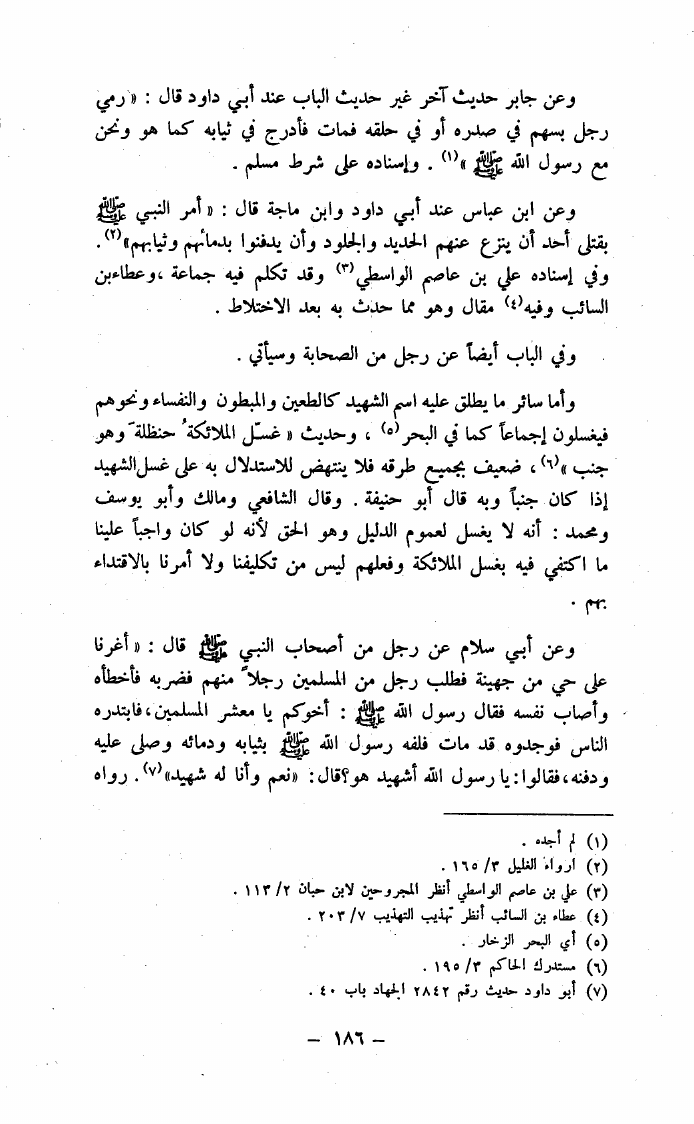 وعن جابر حديث آخر غير حديث الباب عند أبي داود قال : « رمي
رجل بسهم في صدره أو في حلقه فمات فأدرج في ثيابه كما هو ونحن
مع رسول الله ﷺ »(١) . وإسناده على شرط مسلم .
وعن ابن عباس عند أبي داود وابن ماجة قال : « أمر النبي ﷺ
بقتلى أحد أن ينزع عنهم الحديد والجلود وأن يدفنوا بدمائهم وثيابهم»(٢).
وفي إسناده علي بن عاصم الواسطي(٣) وقد تكلم فيه جماعة ،وعطاءبن
السائب وفيه(٤) مقال وهو مما حدث به بعد الاختلاط .
وفي الباب أيضاً عن رجل من الصحابة وسيأتي .
وأما سائر ما يطلق عليه اسم الشهيد كالطعين والمبطون والنفساء ونحوهم
فيغسلون إجماعاً كما في البحر(٥) ، وحديث « غسّل الملائكةُ حنظلةَ وهو
جنب »(٦) ، ضعيف بجميع طرقه فلا ينتهض للاستدلال به على غسل الشهيد
إذا كان جنباً وبه قال أبو حنيفة . وقال الشافعي ومالك وأبو يوسف
ومحمد : أنه لا يغسل لعموم الدليل وهو الحق لأنه لو كان واجباً علينا
ما اكتفي فيه بغسل الملائكة وفعلهم ليس من تكليفنا ولا أمرنا بالاقتداء
بهم .
وعن أبي سلام عن رجل من أصحاب النبي ﷺ قال : « أغرنا
على حي من جهينة فطلب رجل من المسلمين رجلاً منهم فضربه فأخطأه
وأصاب نفسه فقال رسول الله ﷺ : أخوكم يا معشر المسلمين،فابتدره
الناس فوجدوه قد مات فلفه رسول الله ﷺ بثيابه ودمائه وصلى عليه
ودفنه،فقالوا:يا رسول الله أشهيد هو؟قال: «نعم وأنا له شهيد»(٧). رواه
(١) لم أجده .
(٢) ارواء الغليل ٣/ ١٦٥ .
(٣) علي بن عاصم الواسطي أنظر المجروحين لابن حبان ٢/ ١١٣ .
(٤) عطاء بن السائب أنظر تهذيب التهذيب ٧/ ٢٠٣ .
(٥) أي البحر الزخار .
(٦) مستدرك الحاكم ٣/ ١٩٥ .
(٧) أبو داود حديث رقم ٢٨٤٢ الجهاد باب ٤٠ .
– ١٨٦ –